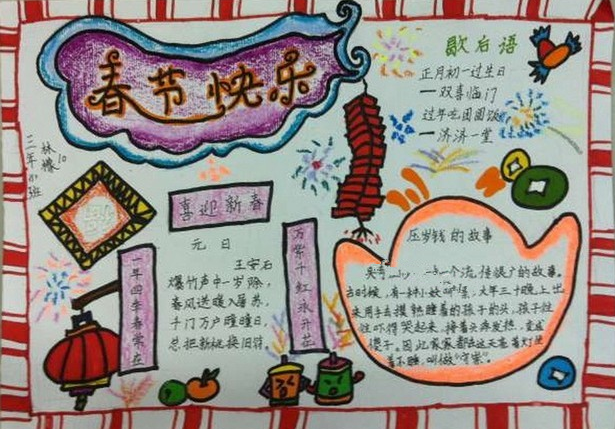 春节快乐
歇后语
正月初一过生日
一双喜临门
过年吃团圆饭
一济济一堂
三年小班
林 10
喜迎新春
元日
王安石
爆竹声中一岁除，
春风送暖入屠苏，
千门万户曈曈日，
总把新桃换旧符
一年四季春常在
万紫千红永开花
压岁钱的故事
一个流传很广的故事。
古时候，有一种小妖叫"祟"，大年三十晚上出
来用手去摸熟睡着的孩子的头，孩子往
往吓得哭起来，接着头疼发热，变成
傻子。因此家家都在这天亮着灯坐
着不睡，叫做"守祟"。